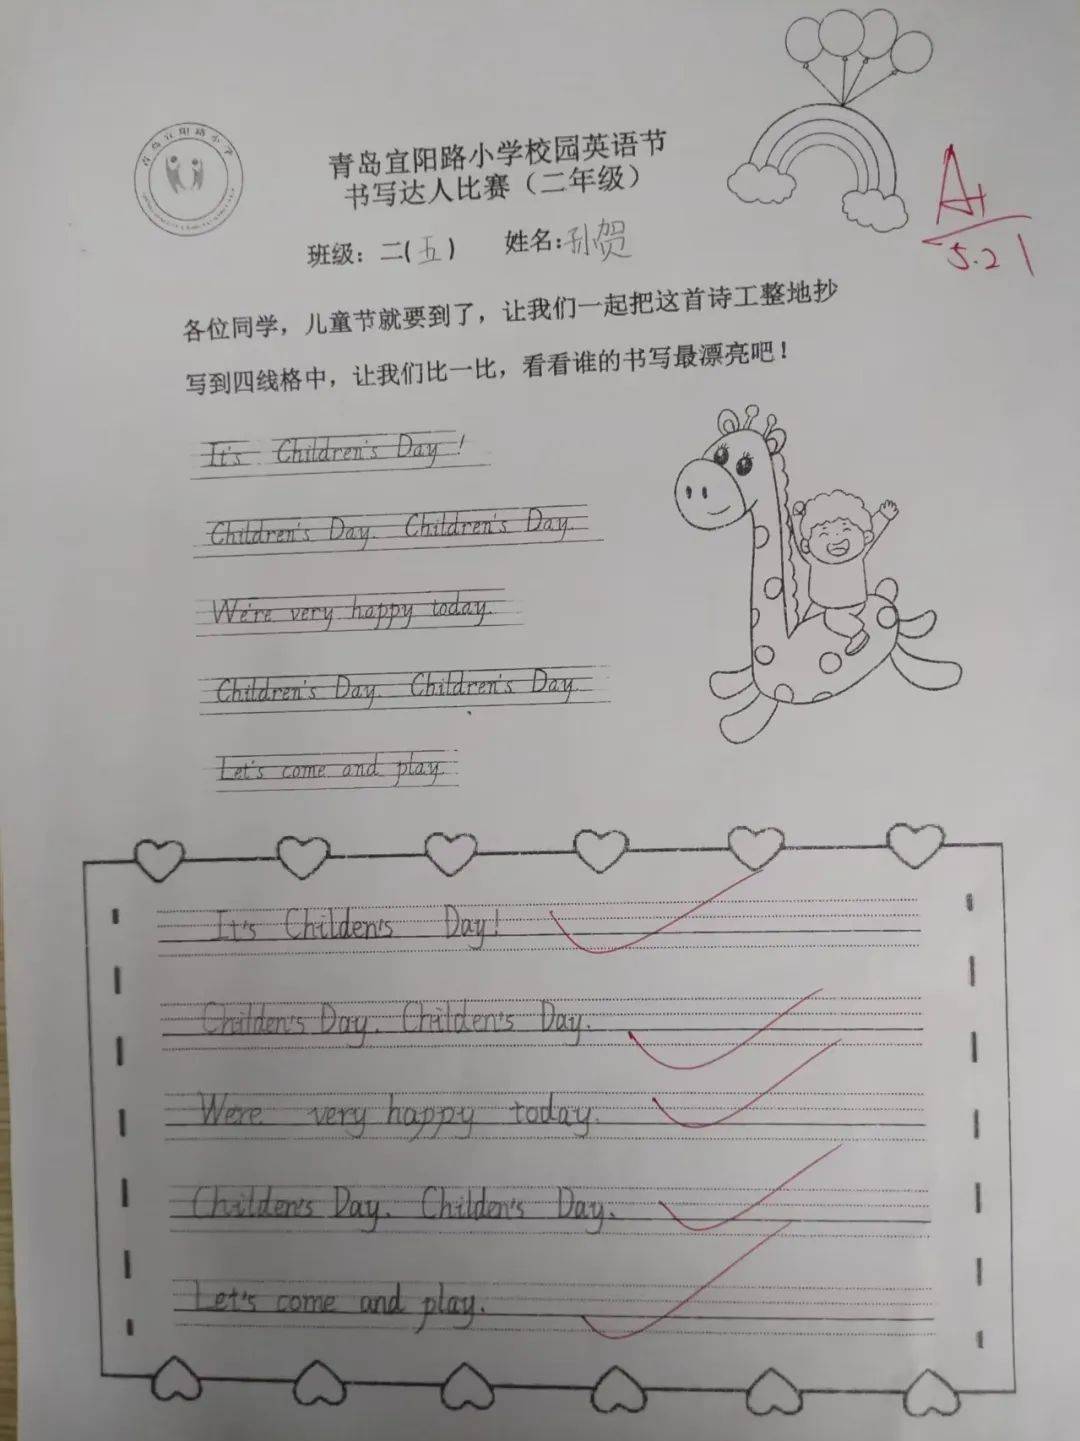 青岛宜阳路小学
青岛宜阳路小学校园英语节
书写达人比赛（二年级）
班级：二(五) 姓名:孙贺
A+
5.21
各位同学，儿童节就要到了，让我们一起把这首诗工整地抄
写到四线格中，让我们比一比，看看谁的书写最漂亮吧！
It's Children's Day!
Children's Day. Children's Day.
We're very happy today.
Children's Day. Children's Day.
Let's come and play.
It's Childen's Day!
Childen's Day. Childen's Day.
We're very happy today.
Childen's Day. Childen's Day.
Let's come and play.